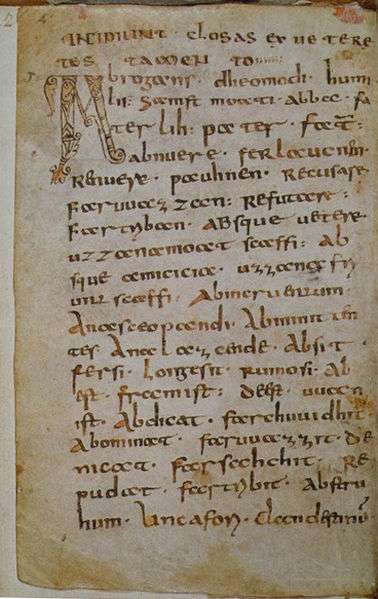 INCIPIUNT CLOSAS EX UETERE
TES TAMEN TO
Abrogans · dheomodi · hum
lis : samftmoati · abbæ · fa
terlih : pater · fat̄ :
abnuere · ferlaucnen ·
Renuere · pauhnen · Recusare
Faruuazzan : Refutare :
Fartriban · ABsque uetere
uzzanamoatscaffi : Ab
sque amicicia · uzzana fri
unt scaffi ·
Abminiten
tes Absit
fersi · Longesit · rumosi · Ab
est · framist : deest · uuan
ist · Abdicat · farchuuidhit ·
Abominat · faruuazzit · De
nicat · farsahchit · Re
pudat · fartribit · Abstru
hum · Uncafori ·